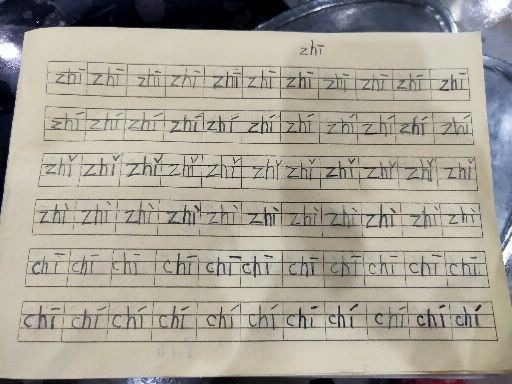 zhī
zhī zhī zhī zhī zhī zhī zhī zhī zhī zhī zhī
zhí zhí zhí zhí zhí zhí zhí zhí zhí zhí zhí
zhǐ zhǐ zhǐ zhǐ zhǐ zhǐ zhǐ zhǐ zhǐ zhǐ zhǐ
zhì zhì zhì zhì zhì zhì zhì zhì zhì zhì zhì
chī chī chī chī chī chī chī chī chī chī chī
chí chí chí chí chí chí chí chí chí chí chí